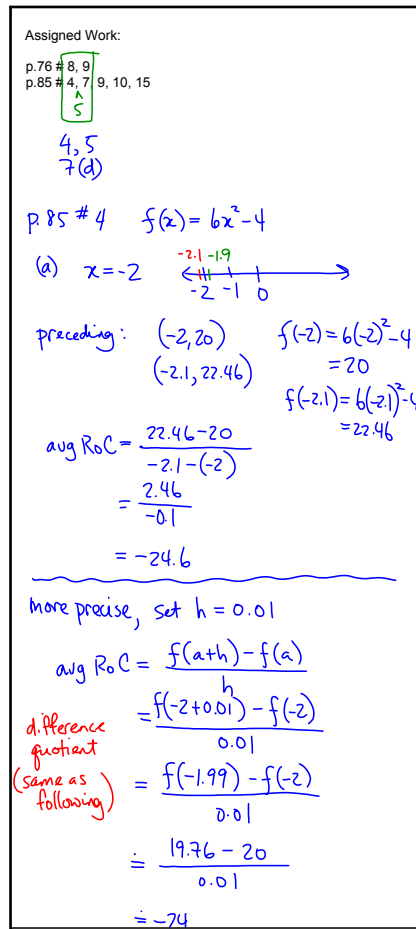 Assigned Work:
p.76 # 8, 9
p.85 # 4, 7, 9, 10, 15
^
5
4, 5
7(d)
p.85 # 4 f(x) = 6x² - 4
(a) x = -2
-2.1 -1.9
-2 -1 0
preceding: (-2, 20) f(-2) = 6(-2)² - 4
= 20
(-2.1, 22.46)
f(-2.1) = 6(-2.1)² - 4
= 22.46
avg RoC = 22.46 - 20 / -2.1 - (-2)
= 2.46 / -0.1
= -24.6
more precise, set h = 0.01
avg RoC = f(a+h) - f(a) / h
= f(-2+0.01) - f(-2) / 0.01
difference
quotient
(same as
following)
= f(-1.99) - f(-2) / 0.01
≐ 19.76 - 20 / 0.01
≐ -24